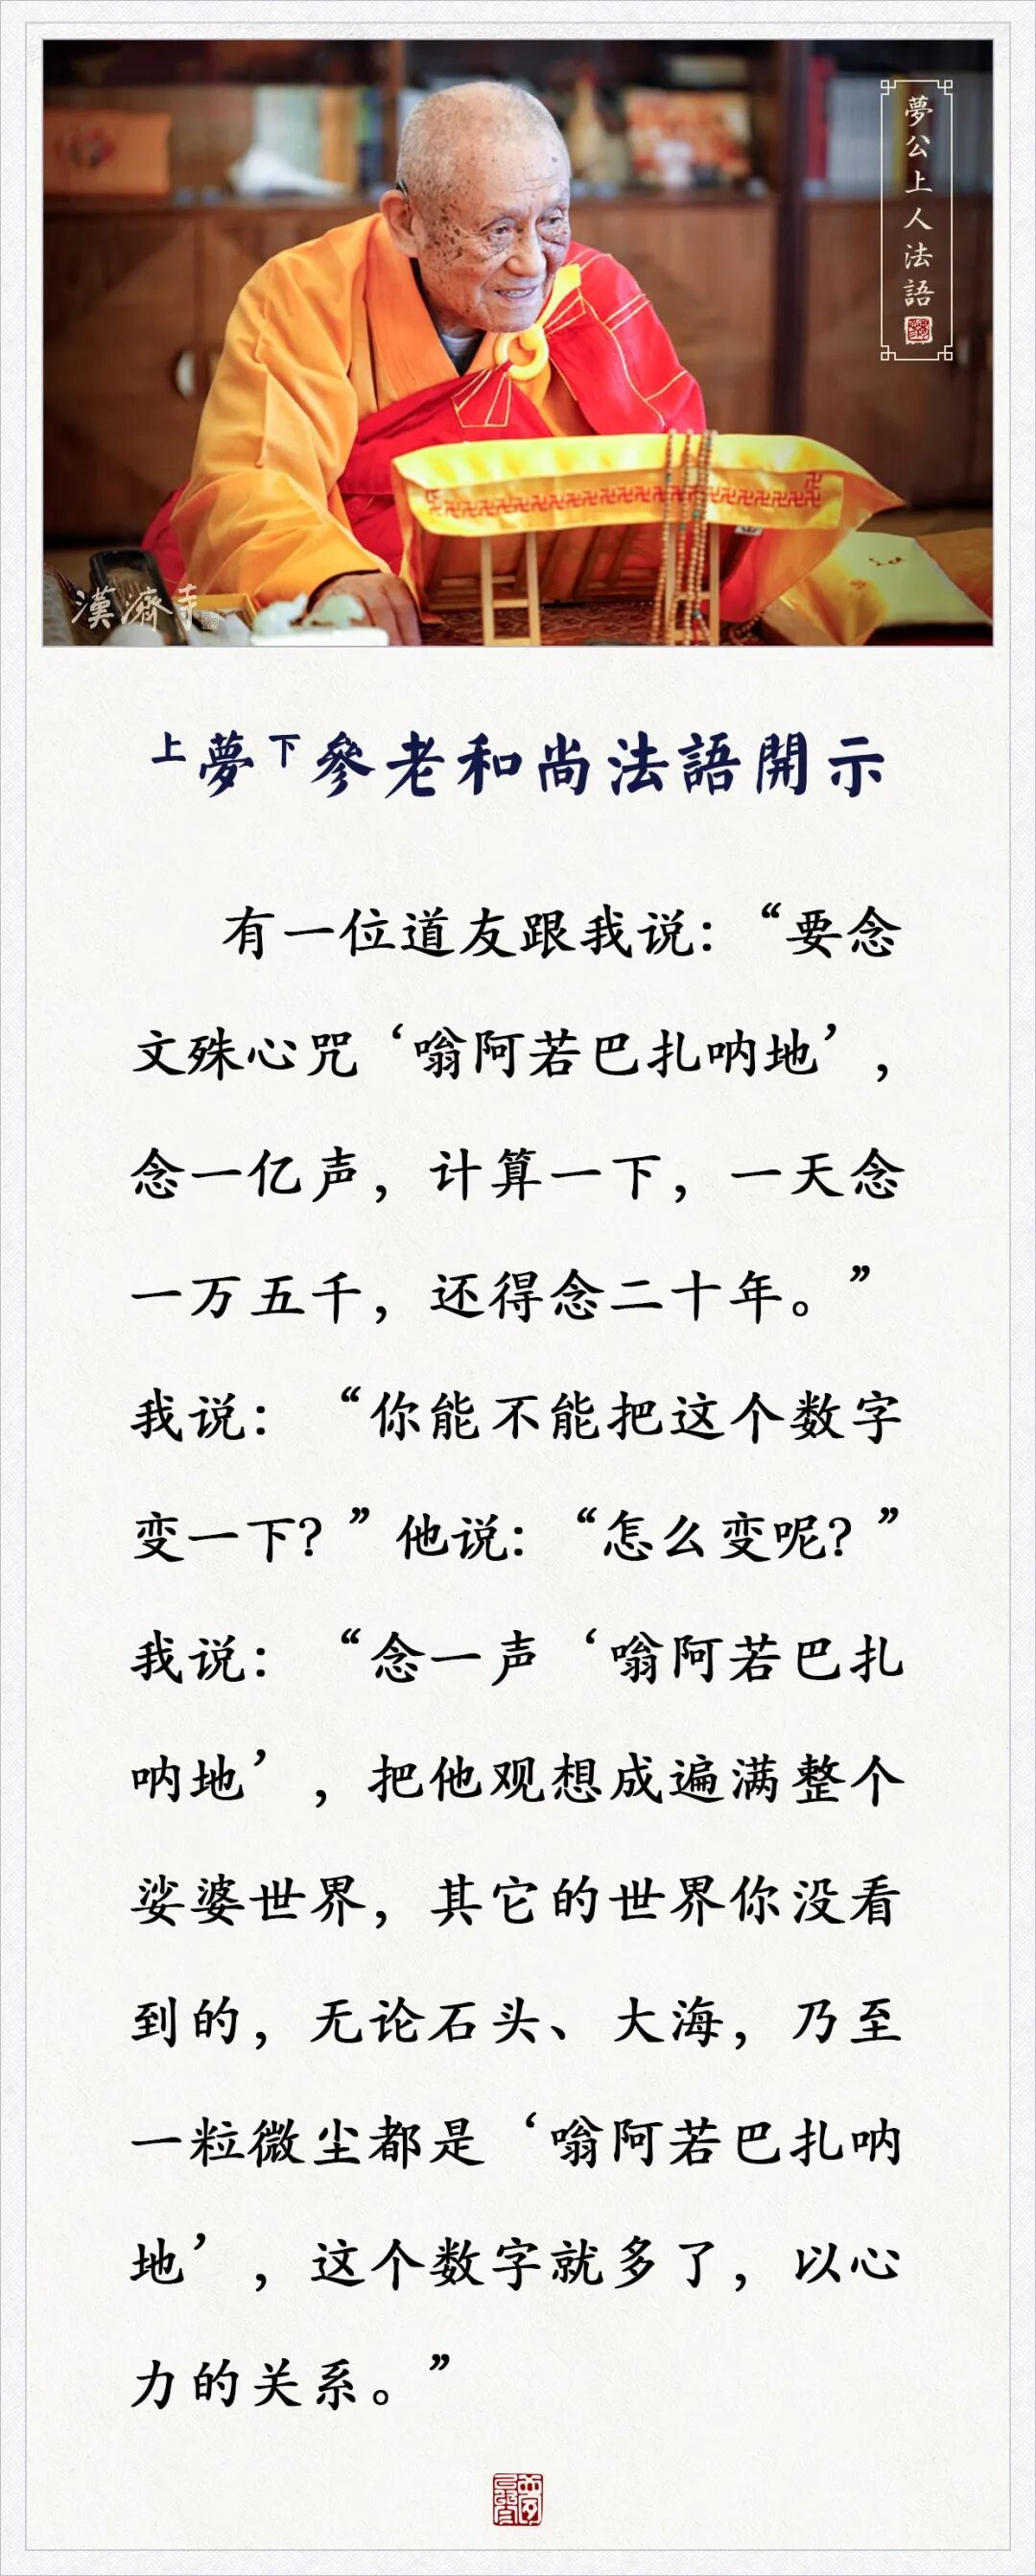 夢公上人法語
漢濟寺
上夢下參老和尚法語開示
有一位道友跟我说：“要念
文殊心咒‘嗡阿若巴扎呐地’，
念一亿声，计算一下，一天念
一万五千，还得念二十年。”
我说：“你能不能把这个数字
变一下？”他说：“怎么变呢？”
我说：“念一声‘嗡阿若巴扎
呐地’，把他观想成遍满整个
娑婆世界，其它的世界你没看
到的，无论石头、大海，乃至
一粒微尘都是‘嗡阿若巴扎呐
地’，这个数字就多了，以心
力的关系。”